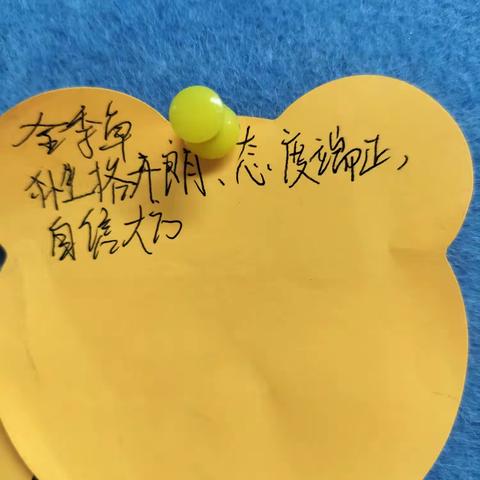 全季单
性格开朗、态度端正，
自信大方